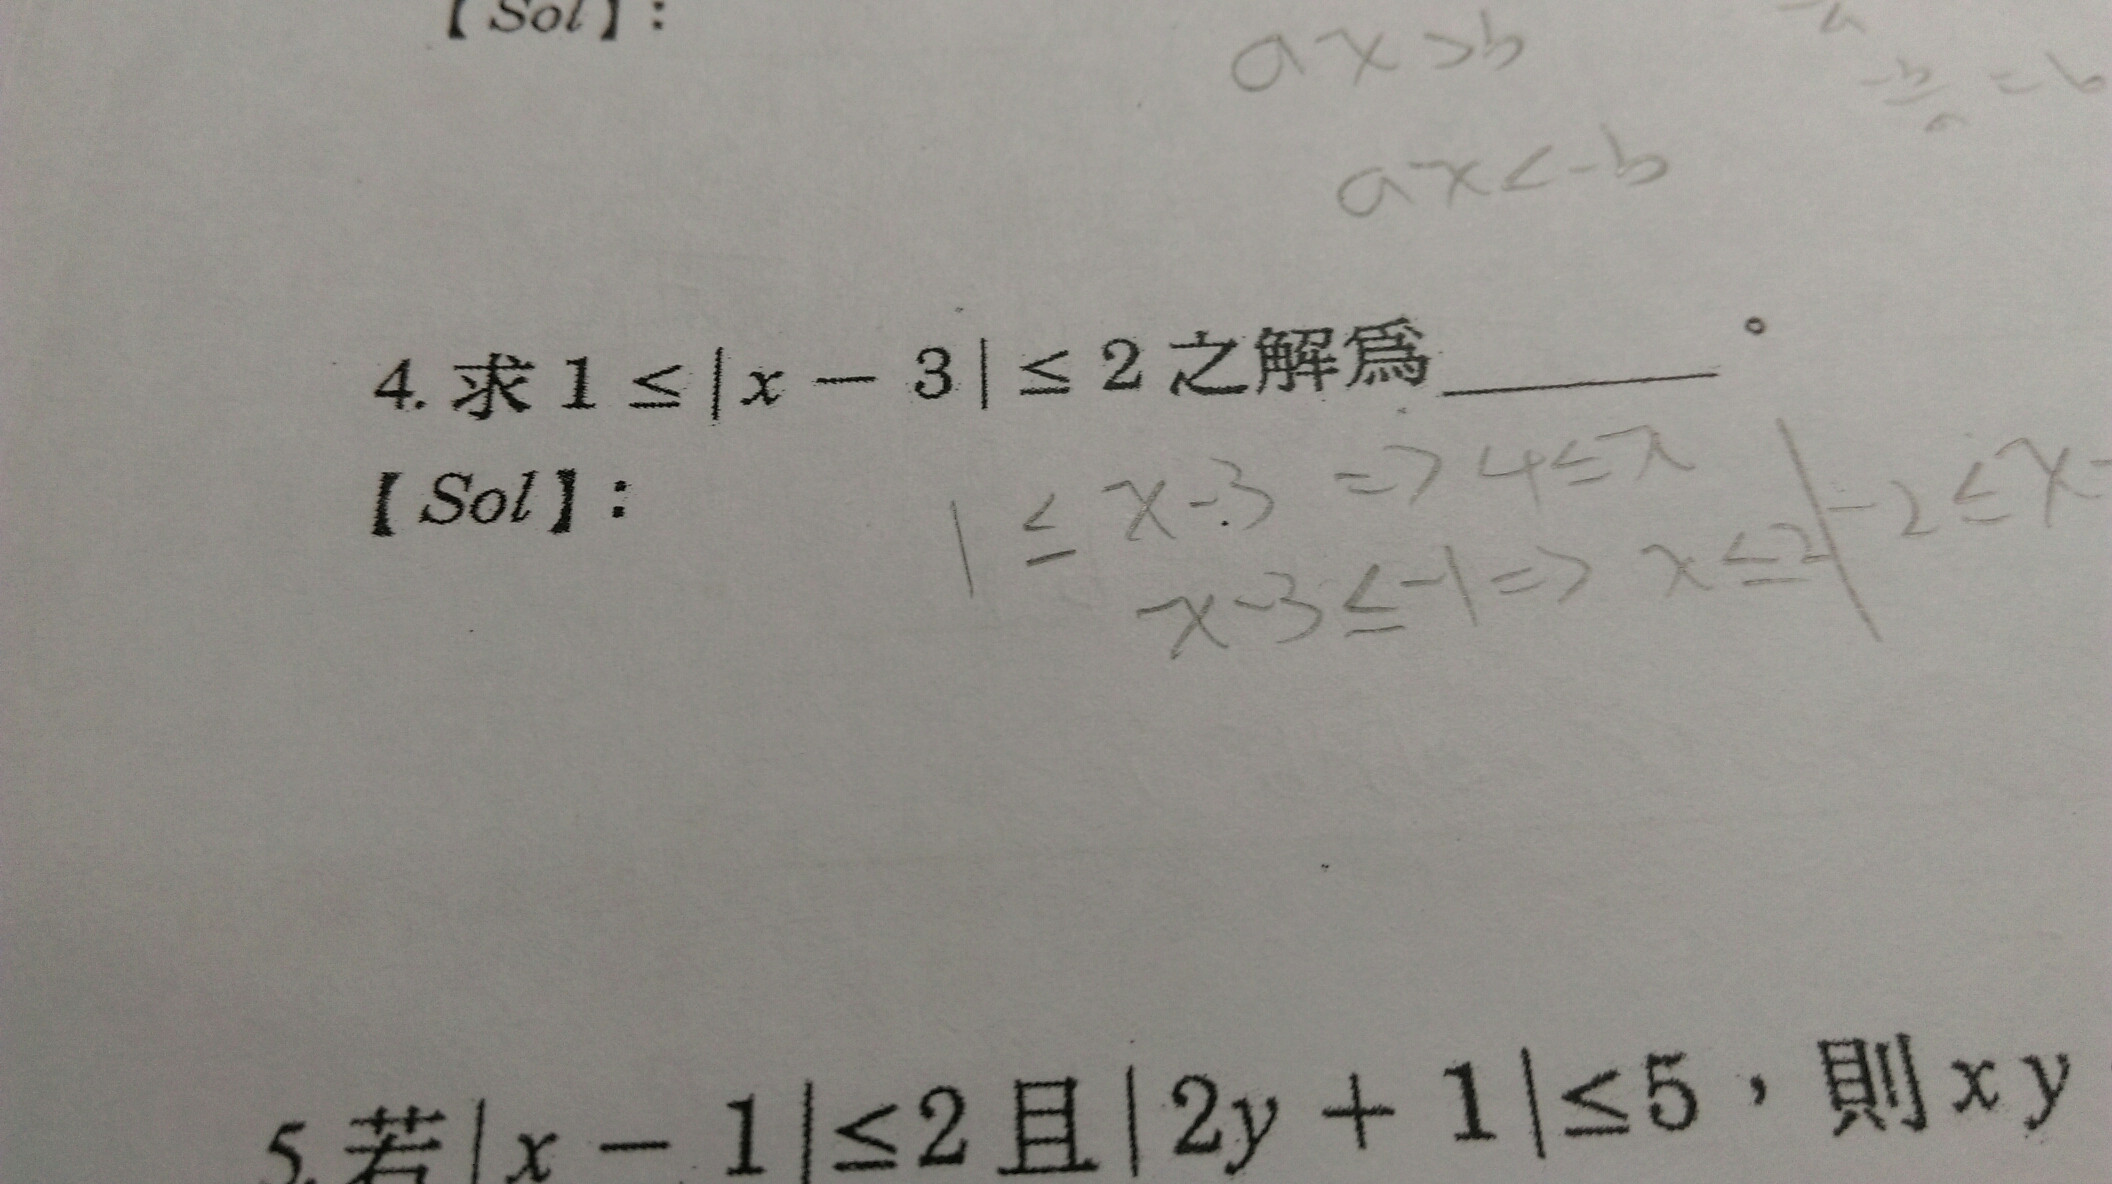 【Sol】:
ax>b
ax<-b
4. 求 1 ≤ |x − 3| ≤ 2 之解為______。
【Sol】:
1 ≤ x-3 => 4≤x
-2 ≤ x-
x-3≤-1 => x≤2
5. 若|x − 1|≤2 且|2y + 1|≤5，則xy